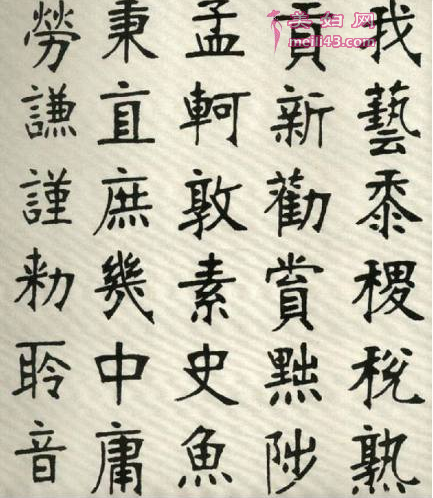 我藝黍稷稅熟
貢新勸賞黜陟
孟軻敦素史魚
秉直庶幾中庸
勞謙謹勑聆音
美妇网
meili43.com